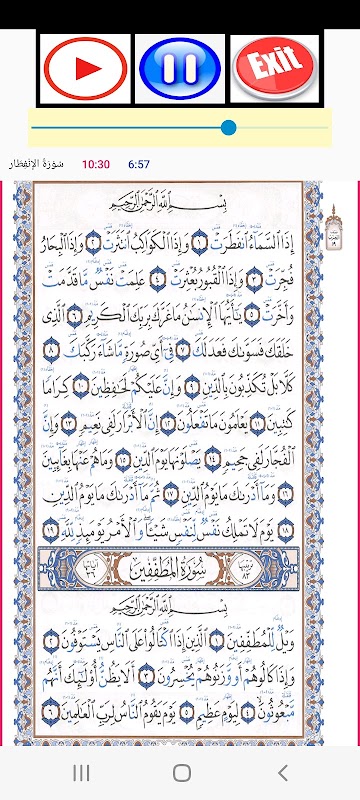 Exit
سورة الإنفطار 10:30 6:57
بِسْمِ اللَّهِ الرَّحْمَٰنِ الرَّحِيمِ
إِذَا السَّمَاءُ انفَطَرَتْ ١ وَإِذَا الْكَوَاكِبُ انتَثَرَتْ ٢ وَإِذَا الْبِحَارُ
فُجِّرَتْ ٣ وَإِذَا الْقُبُورُ بُعْثِرَتْ ٤ عَلِمَتْ نَفْسٌ مَّا قَدَّمَتْ
وَأَخَّرَتْ ٥ يَا أَيُّهَا الْإِنسَٰنُ مَا غَرَّكَ بِرَبِّكَ الْكَرِيمِ ٦ الَّذِي
خَلَقَكَ فَسَوَّىٰكَ فَعَدَلَكَ ٧ فِي أَيِّ صُورَةٍ مَّا شَاءَ رَكَّبَكَ ٨
كَلَّا بَلْ تُكَذِّبُونَ بِالدِّينِ ٩ وَإِنَّ عَلَيْكُمْ لَحَٰفِظِينَ ١٠ كِرَامًا
كَٰتِبِينَ ١١ يَعْلَمُونَ مَا تَفْعَلُونَ ١٢ إِنَّ الْأَبْرَارَ لَفِي نَعِيمٍ ١٣ وَإِنَّ
الْفُجَّارَ لَفِي جَحِيمٍ ١٤ يَصْلَوْنَهَا يَوْمَ الدِّينِ ١٥ وَمَا هُمْ عَنْهَا بِغَائِبِينَ
١٦ وَمَا أَدْرَىٰكَ مَا يَوْمُ الدِّينِ ١٧ ثُمَّ مَا أَدْرَىٰكَ مَا يَوْمُ الدِّينِ
١٨ يَوْمَ لَا تَمْلِكُ نَفْسٌ لِّنَفْسٍ شَيْئًا وَالْأَمْرُ يَوْمَئِذٍ لِّلَّهِ ١٩
ترتيبها ٨٣ سُورَةُ الْمُطَفِّفِينَ آياتها ٣٦
بِسْمِ اللَّهِ الرَّحْمَٰنِ الرَّحِيمِ
وَيْلٌ لِّلْمُطَفِّفِينَ ١ الَّذِينَ إِذَا اكْتَالُوا عَلَى النَّاسِ يَسْتَوْفُونَ ٢
وَإِذَا كَالُوهُمْ أَو وَّزَنُوهُمْ يُخْسِرُونَ ٣ أَلَا يَظُنُّ أُولَٰئِكَ أَنَّهُم
مَّبْعُوثُونَ ٤ لِيَوْمٍ عَظِيمٍ ٥ يَوْمَ يَقُومُ النَّاسُ لِرَبِّ الْعَالَمِينَ ٦